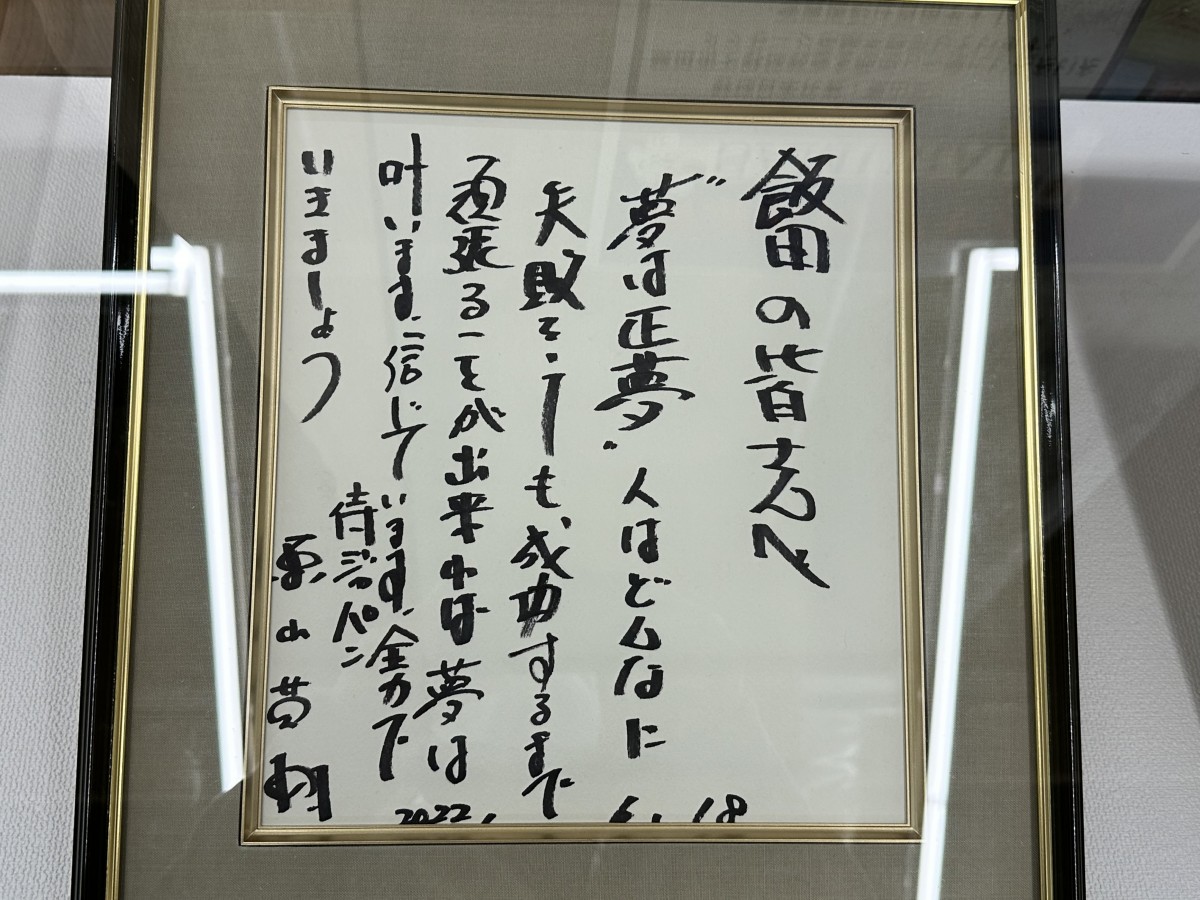 飯田の皆さんへ
"夢は正夢" 人はどんなに
失敗をしても、成功するまで
頑張ることが出来れば夢は
叶います、信じています、全力で
いきましょう
侍ジャパン
栗山英樹
2022. 6. 18